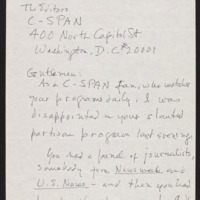 The Editors
C-SPAN
400 North Capitol St.
Washington, D.C. 20001
Gentlemen:
As a C-SPAN fan, who watches
your programs daily, I was
disappointed in your slanted
partisan program last evening.
You had a panel of journalists,
somebody from Newsweek and
U.S. News – and then you had